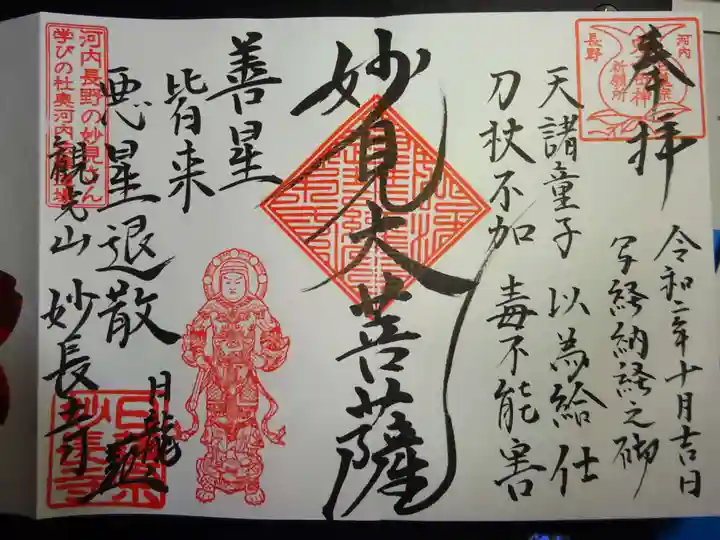 奉拝
河内
長野
祈願所
令和二年十月吉日
写経納経之砌
天諸童子 以為給仕
刀杖不加 毒不能害
妙見大菩薩
善星
皆来
悪星退散
河内長野の妙見さん
学びの杜奥河内
観光山 妙長寺
日龍